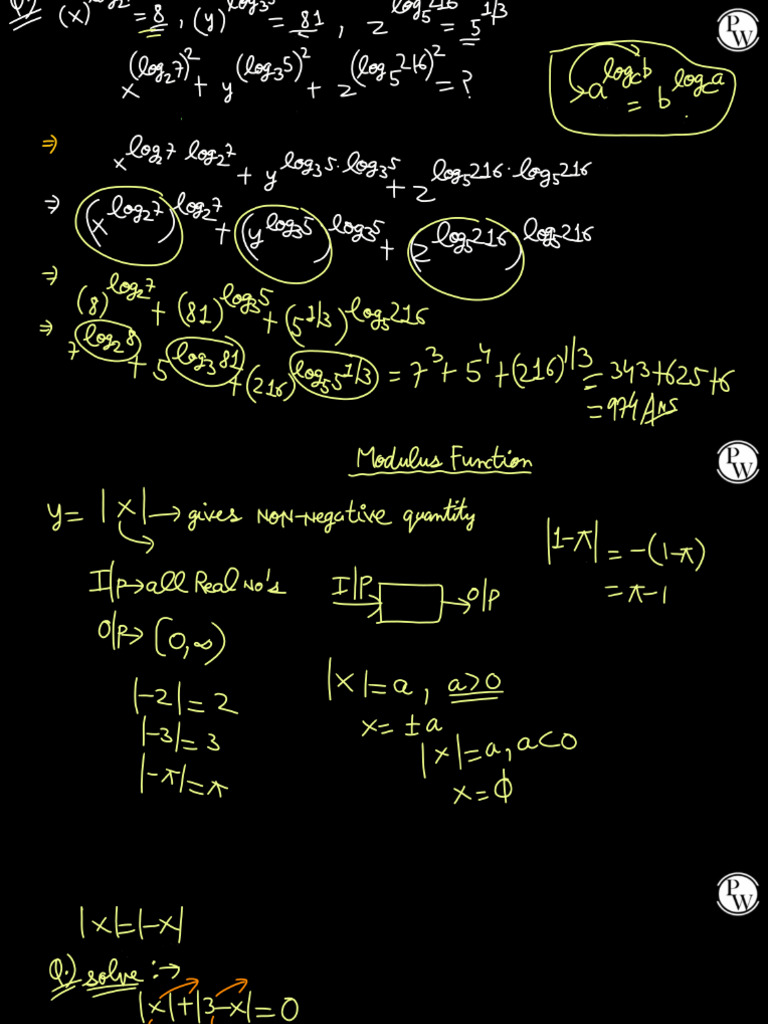 Q.) (x)^log₂7 = 8, (y)^log₃5 = 81, z^log₅216 = 5^1/3
PW
x^(log₂7)² + y^(log₃5)² + z^(log₅216)² = ?
a^log_c b = b^log_c a
⇒ x^log₂7·log₂7 + y^log₃5·log₃5 + z^log₅216·log₅216
⇒ (x^log₂7)^log₂7 + (y^log₃5)^log₃5 + (z^log₅216)^log₅216
⇒ (8)^log₂7 + (81)^log₃5 + (5^1/3)^log₅216
⇒ 7^log₂8 + 5^log₃81 + (216)^log₅5^1/3 = 7³ + 5⁴ + (216)^1/3 = 343+625+6
= 974 Ans
Modulus Function
PW
y = |x| → gives non-negative quantity
|1-π| = -(1-π)
= π-1
I|P → all Real no's
I|P → O|P
O|P → (0,∞)
|-2| = 2
|x| = a, a>0
|-3| = 3
x = ±a
|x| = a, a<0
|-π| = π
x = ϕ
PW
|x| = |-x|
Q.) solve :→
|x|+|3-x| = 0